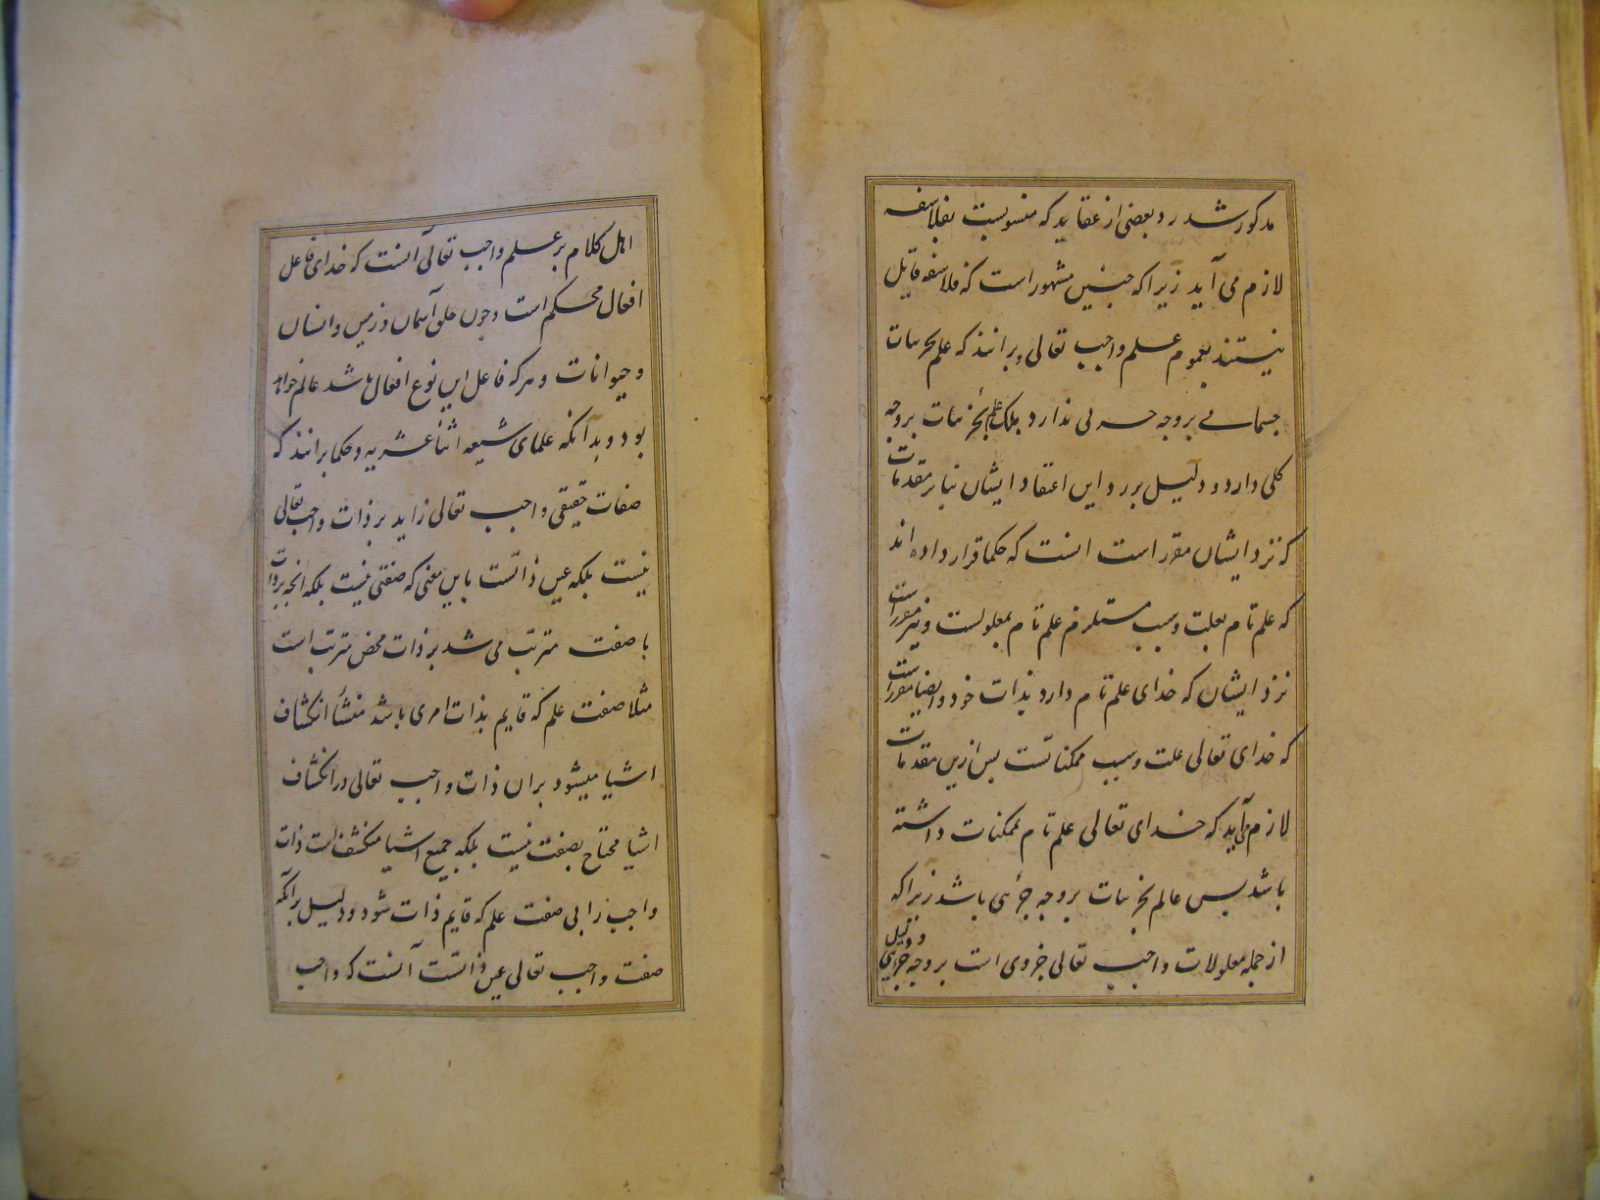 مذکور شد رد بعضی از عقاید که منسوبست بفلاسفه
لازم می آید زیرا که چنین مشهور است که فلاسفه قایل
نیستند بعموم علم واجب تعالی و برانند که علم بجزییات
جسمانی بروجه جزیی ندارد بلکه علم بجزییات بروجه
کلی دارد و دلیل بر رد این اعتقاد ایشان بنابر مقدمات
که نزد ایشان مقرر است اینست که حکما قرار داده اند
که علم تام بعلت و سبب مستلزم علم تام بمعلولست و نیز مقرر است
نزد ایشان که خدای علم تام دارد بذات خود و ایضا مقرر است
که خدای تعالی علت و سبب ممکناتست پس ازین مقدمات
لازم می آید که خدای تعالی علم تام بممکنات داشته
باشد پس عالم بجزییات بروجه جزیی باشد زیرا که
از جمله معلولات واجب تعالی جزوی است بروجه جزیی و دلیل
اهل کلام بر علم واجب تعالی آنست که خدای فاعل
افعال محکم است چون خلق آسمان و زمین و انسان
و حیوانات و هر که فاعل این نوع افعال باشد عالم خواهد
بود و بدانکه علمای شیعه اثنا عشریه و حکما برانند که
صفات حقیقی واجب تعالی زاید بر ذات واجب تعالی
نیست بلکه عین ذاتست باین معنی که صفتی نیست بلکه آنچه بر ذات
با صفت مترتب می شد بر ذات محض مترتب است
مثلا صفت علم که قایم بذات امری باشد منشأ انکشاف
اشیا میشود بران ذات واجب تعالی در انکشاف
اشیا محتاج بصفت نیست بلکه جمیع اشیا منکشف است ذات
واجب را بی صفت علم که قایم ذات شود و دلیل برآنکه
صفت واجب تعالی عین ذاتست آنست که واجب